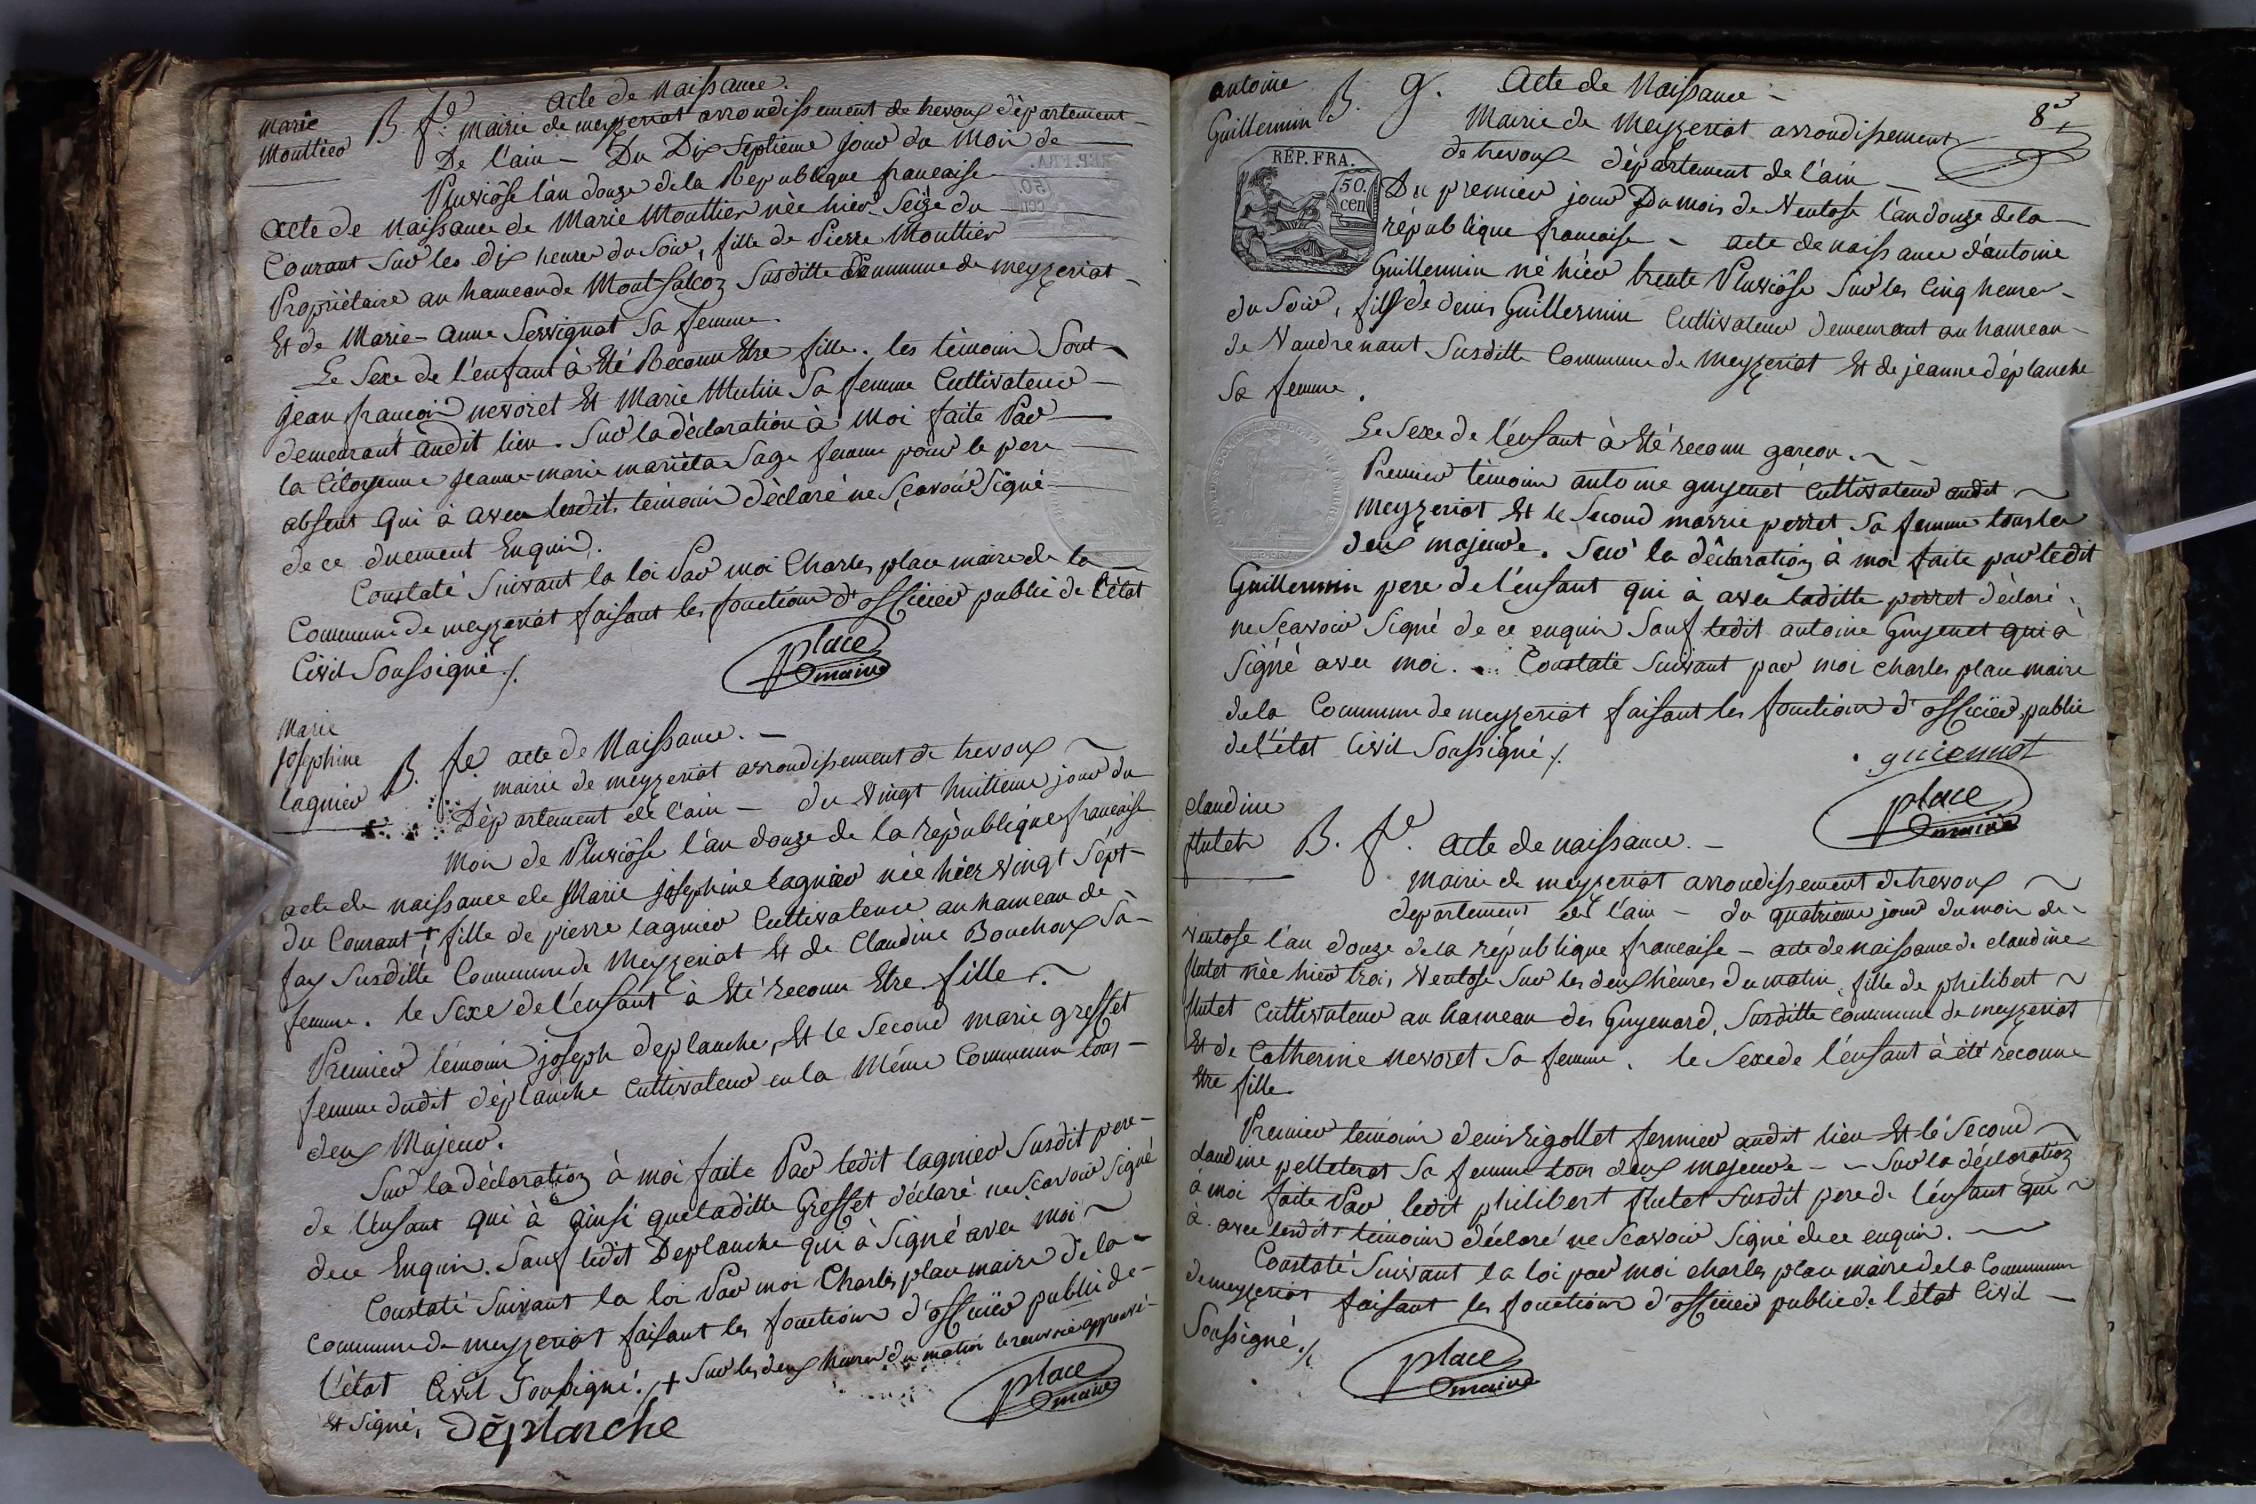 Marie
Mouttier
B fe. acte de Naissance.
Mairie de meyzeriat arrondissement de trevoux département
De l'ain – Du Dix Septieme jour du Mois de
Pluviôse l'an douze de la Republique francaise
acte de Naissance de Marie Mouttier née hier Seize du
Courant Sur les dix heures du Soir, fille de Pierre Mouttier
Propriètaire au hameau de Montfalcoz Susditte Commune de meyzeriat
Et de Marie-anne Servignat Sa femme.
Le Sexe de l'enfant à Eté Reconnu Etre fille. les tèmoins Sont
jean francois nevoret Et Marie Mutin Sa femme Cultivateurs
demeurant audit lieu. Sur la dèclaration à Moi faite Par
la Citoyenne jeanne-marie marièta Sage femme pour le pere
absent qui à avec lesdits tèmoins dèclaré ne Scavoir Signé
de ce duement Enquis.
Constaté Suivant la loi Par moi Charles place maire de la
Commune de meyzeriat faisant les fonctions d'officier public de l'état
Civil Soussigné ./.
place
maire
Marie
Josephine
lagnier
B. fe. acte de Naissance. –
mairie de meyzeriat arrondissement de trevoux
Dèpartement de l'ain – du vingt huitieme jour du
Mois de Pluviôse l'an douze de la rèpublique francaise
acte de naissance de Marie josephine lagnier née hier vingt Sept
du Courant + fille de pierre lagnier Cultivateur au hameau de
fay Susditte Commune de Meyzeriat Et de Claudine Bouchoux Sa
femme. le Sexe de l'enfant à Eté reconnu Etre fille.
Premier tèmoin joseph deplanche, Et le Second marie greffet
femme dudit déplanche Cultivateur en la Même Commune tous
deux Majeur.
Sur la dèclaration à moi faite Par ledit lagnier Susdit pere
de l'enfant qui à ainsi que laditte Greffet déclaré ne Scavoir Signé
de ce Enquis. Sauf ledit Deplanche qui à Signé avec moi
Constaté Suivant la loi Par moi Charles place maire de la
commune de meyzeriat faisant les fonctions d'officier public de
l'état Civil Soussigné. /. + Sur les deux heures du matin le renvoi approuvé
Et Signé,
déplanche
place
maire
antoine
Guillermin
B. g. Acte de Naissance –
8
Mairie de Meyzeriat arrondissement
de trevoux département de l'ain
REP. FRA.
50.
cen
Du premier jour Du mois de Ventose l'an douze de la
rèpublique francaise – acte de naissance d'antoine
Guillermin né hier trente Pluviôse Sur les Cinq heures
du Soir, fils de denis Guillermin Cultivateur Demeurant au hameau
de Vaudrenant Susditte Commune de Meyzeriat Et de jeanne déplanche
Sa femme.
Le Sexe de l'enfant à Eté reconnu garcon.
Premier tèmoin antoine guyenet Cultivateur audit
Meyzeriat Et le Second marrie perret Sa femme tous les
deux majeurs. Sur la dèclaration à moi faite par ledit
Guillermin pere de l'enfant qui à avec laditte perret dèclaré
ne Scavoir Signé de ce enquis Sauf ledit antoine Guyenet qui à
Signé avec moi. Constaté Suivant par moi charles place maire
de la Commune de meyzeriat faisant les fonctions d'officier public
de l'état Civil Soussigné ./.
guiennot
place
maire
claudine
flutet
B. fe. acte de naissance. –
mairie de meyzeriat arrondissement de trevoux
departement de l'ain – du quatrieme jour du mois de
Ventose l'an douze de la république francaise – acte de naissance de claudine
flutet née hier trois Ventose Sur les deux heures du matin, fille de philibert
flutet Cultivateur au hameau des Guyenard, Susditte commune de meyzeriat
Et de Catherine nevoret Sa femme. le Sexe de l'enfant à été reconnu
Etre fille.
Premier temoin denis rigollet fermier audit lieu Et le Second
claudine pelleterat Sa femme tous deux majeurs – Sur la déclaration
à moi faite Par ledit philibert flutet Susdit pere de l'enfant qui
à avec lesdits temoins déclaré ne Scavoir Signé de ce enquis.
Constaté Suivant la loi par moi charles place maire de la Commune
de meyzeriat faisant les fonctions d'officier public de l'état Civil –
Soussigné ./.
place
maire